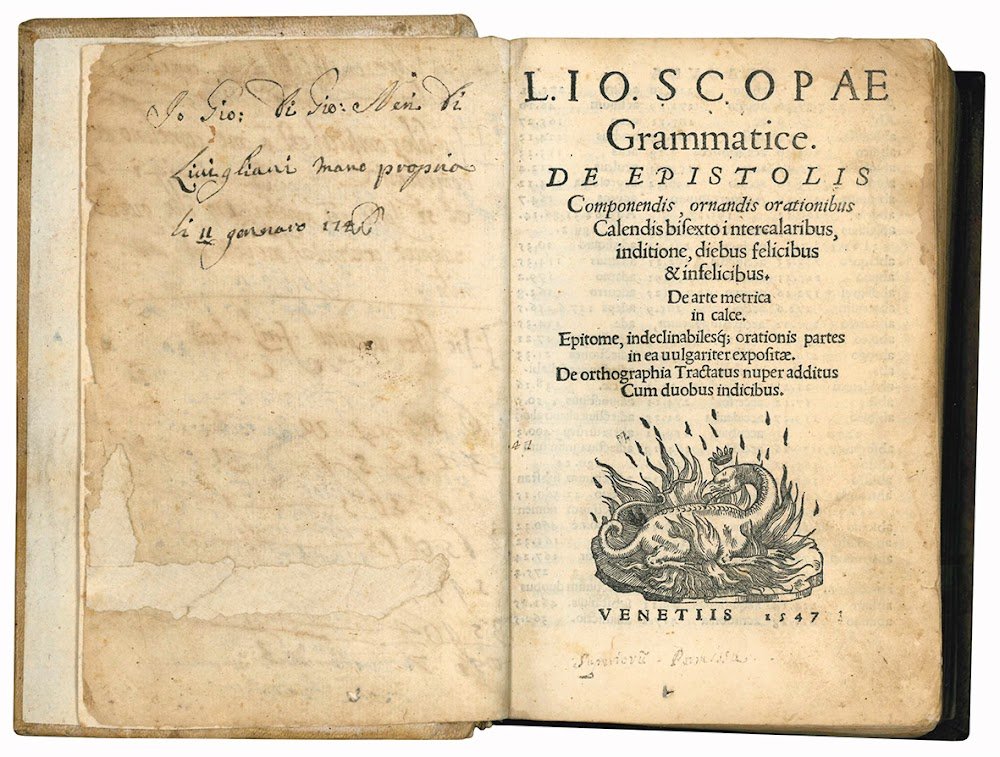 Io Gio: di Gio: Neri di
Livigliani mano propria
li 11 gennaro
L. IO. SCOPAE
Grammatice.
DE EPISTOLIS
Componendis, ornandis orationibus
Calendis bisexto intercalaribus,
inditione, diebus felicibus
& infelicibus.
De arte metrica
in calce.
Epitome, indeclinabilesq; orationis partes
in ea uulgariter expositæ.
De orthographia Tractatus nuper additus
Cum duobus indicibus.
VENETIIS 1547